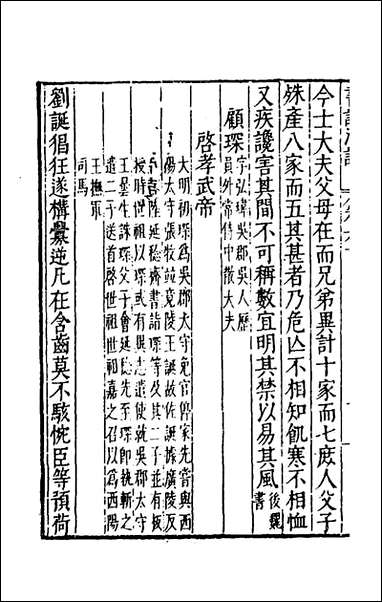 今士大夫父母在而兄弟異計十家而七庶人父子
殊產八家而五其甚者乃危亾不相知飢寒不相恤
又疾讒害其間不可稱數宜明其禁以易其風後魏書
顧琛
字弘瑋吳郡吳人歷
員外常侍中散大夫
啓孝武帝
大明初琛爲吳郡太守免官僚家先嘗與西
陽太守張牧竝
竟陵王誕故佐誕據廣陵反
陸延稔齎書
琛等及其二子竝有板
授時世祖以琛
遣使就吳郡太守
王曇生誅琛父子會延稔先至琛即執斬之
遣二子送首啓世祖世祖嘉之召以爲西陽
王撫軍
司馬
劉誕猖狂遂構釁逆凡在含齒莫不駭惋臣等預荷